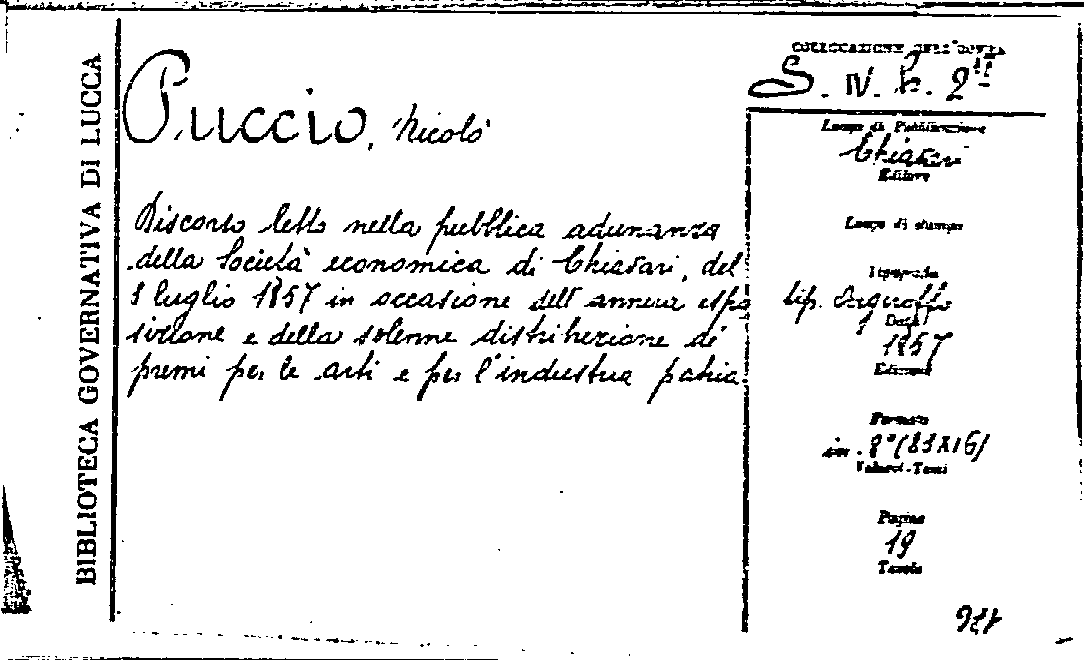 BIBLIOTECA GOVERNATIVA DI LUCCA
Puccio, Nicolò
Discorso letto nella pubblica adunanza
della Società economica di Chiavari, del
luglio 1857 in occasione dell'annua espo
sizione e della solenne distribuzione di
premi per le arti e per l'industria patria
COLLOCAZIONE DELL'OPERA
S. IV. b. 2
Luogo di Pubblicazione
Chiavari
Editore
Luogo di stampa
Tipografia
tip. Argiroffo
Data
1857
Edizione
Formato
in. 8° (
Volumi-Tomi
Pagine
19
Tavole